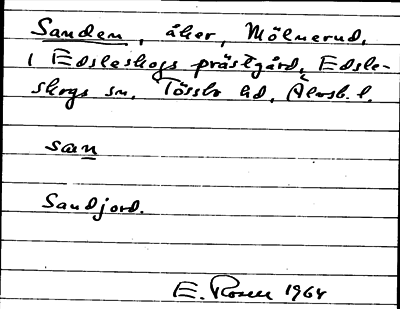 Sanden, åker, Mölnerud,
i Edsleskogs prästgård, Edsle-
skogs sn, Tössbo hd, Älvsb. l.
san
Sandjord.
E. Rosen 1964